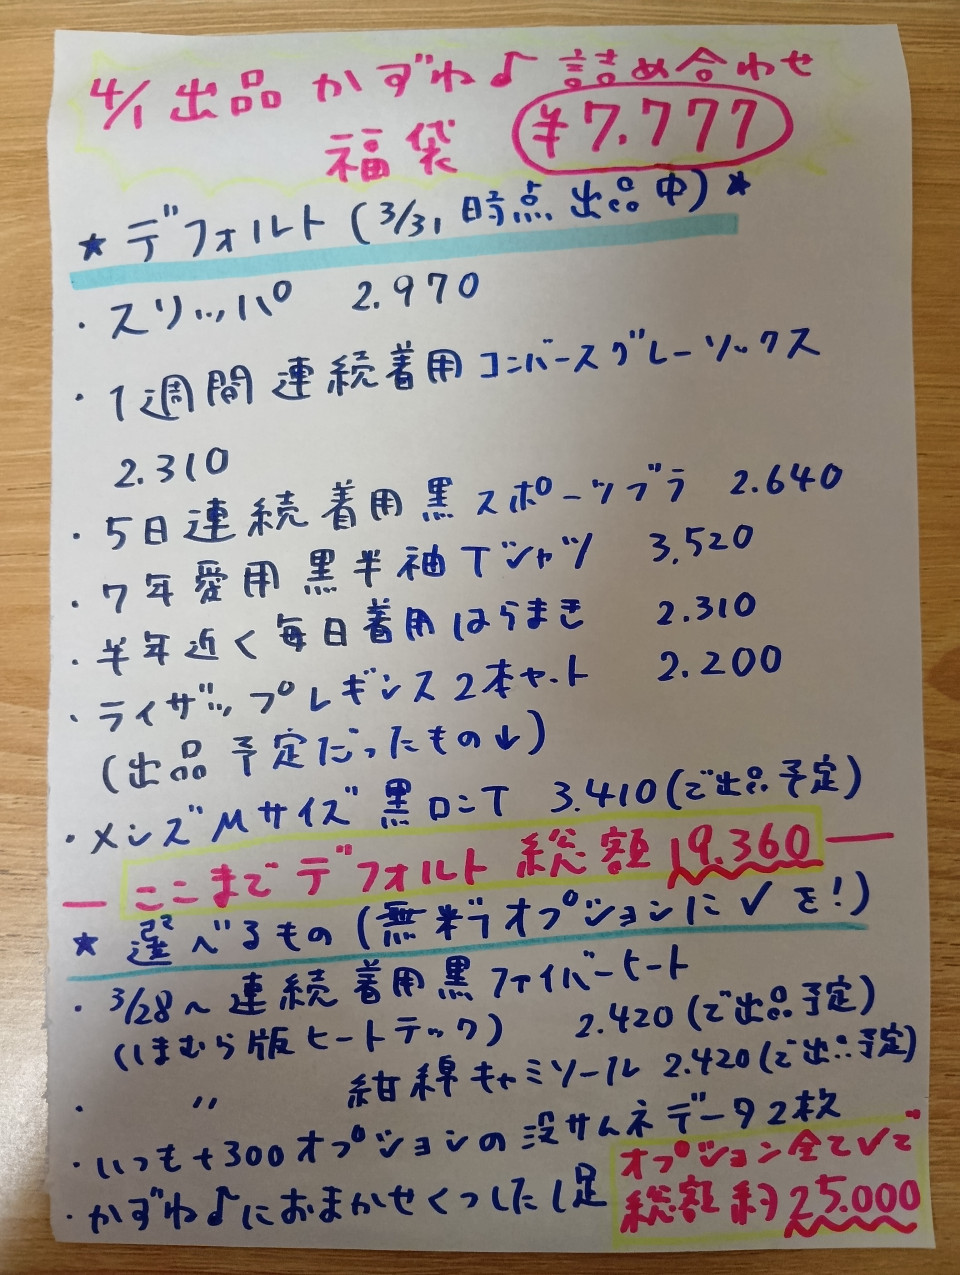 4/1 出品 かずね♪ 詰め合わせ
福袋 ¥7.777
★デフォルト(3/31時点出品中)★
・スリッパ 2.970
・1週間連続着用コンバースグレーソックス
2.310
・5日連続着用黒スポーツブラ 2.640
・7年愛用黒半袖Tシャツ 3,520
・半年近く毎日着用はらまき 2.310
・ライザップレギンス2本セット 2.200
(出品予定だったもの↓)
・メンズMサイズ黒ロンT 3.410(で出品予定)
ここまでデフォルト総額19.360
★選べるもの(無料オプションに✓を!)
・3/28〜連続着用黒ファイバーヒート
(しまむら版ヒートテック) 2.420(で出品予定)
・〃 紺綿キャミソール 2.420(で出品予定)
・いつも+300オプションの没サムネデータ2枚
・かずね♪におまかせくつした1足
オプション全て✓で
総額約25.000